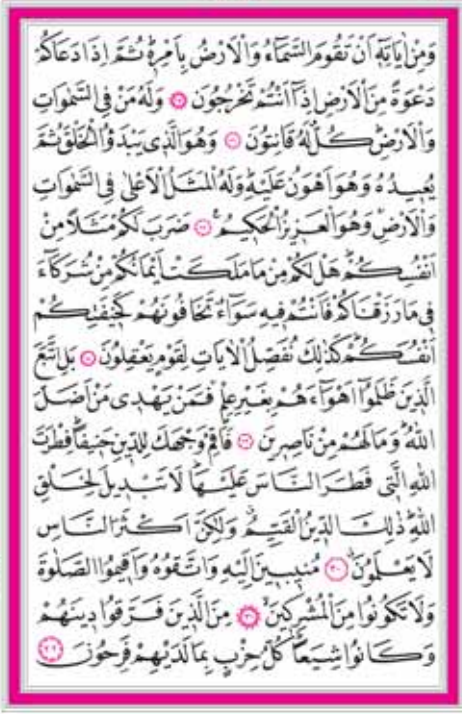 وَمِنْ اٰيَاتِه۪ٓ اَنْ تَقُومَ السَّمَٓاءُ وَالْاَرْضُ بِاَمْرِه۪ۜ ثُمَّ اِذَا دَعَاكُمْ
دَعْوَةً مِنَ الْاَرْضِ اِذَٓا اَنْتُمْ تَخْرُجُونَ ﴿٢٥﴾ وَلَهُ مَنْ فِي السَّمٰوَاتِ
وَالْاَرْضِۜ كُلٌّ لَهُ قَانِتُونَ ﴿٢٦﴾ وَهُوَ الَّذ۪ي يَبْدَؤُا الْخَلْقَ ثُمَّ
يُع۪يدُهُ وَهُوَ اَهْوَنُ عَلَيْهِۜ وَلَهُ الْمَثَلُ الْاَعْلٰى فِي السَّمٰوَاتِ
وَالْاَرْضِۚ وَهُوَ الْعَز۪يزُ الْحَك۪يمُ۟ ﴿٢٧﴾ ضَرَبَ لَكُمْ مَثَلًا مِنْ
اَنْفُسِكُمْۜ هَلْ لَكُمْ مِنْ مَا مَلَكَتْ اَيْمَانُكُمْ مِنْ شُرَكَٓاءَ
ف۪ي مَا رَزَقْنَاكُمْ فَاَنْتُمْ ف۪يهِ سَوَٓاءٌ تَخَافُونَهُمْ كَخ۪يفَتِكُمْ
اَنْفُسَكُمْۜ كَذٰلِكَ نُفَصِّلُ الْاٰيَاتِ لِقَوْمٍ يَعْقِلُونَ ﴿٢٨﴾ بَلِ اتَّبَعَ
الَّذ۪ينَ ظَلَمُٓوا اَهْوَٓاءَهُمْ بِغَيْرِ عِلْمٍۚ فَمَنْ يَهْد۪ي مَنْ اَضَلَّ
اللّٰهُۜ وَمَا لَهُمْ مِنْ نَاصِر۪ينَ ﴿٢٩﴾ فَاَقِمْ وَجْهَكَ لِلدّ۪ينِ حَن۪يفًاۜ فِطْرَتَ
اللّٰهِ الَّت۪ي فَطَرَ النَّاسَ عَلَيْهَاۜ لَا تَبْد۪يلَ لِخَلْقِ
اللّٰهِۜ ذٰلِكَ الدّ۪ينُ الْقَيِّمُۗ وَلٰكِنَّ اَكْثَرَ النَّاسِ
لَا يَعْلَمُونَۗ ﴿٣٠﴾ مُن۪يب۪ينَ اِلَيْهِ وَاتَّقُوهُ وَاَق۪يمُوا الصَّلٰوةَ
وَلَا تَكُونُوا مِنَ الْمُشْرِك۪ينَۙ ﴿٣١﴾ مِنَ الَّذ۪ينَ فَرَّقُوا د۪ينَهُمْ
وَكَانُوا شِيَعًاۜ كُلُّ حِزْبٍ بِمَا لَدَيْهِمْ فَرِحُونَ ﴿٣٢﴾